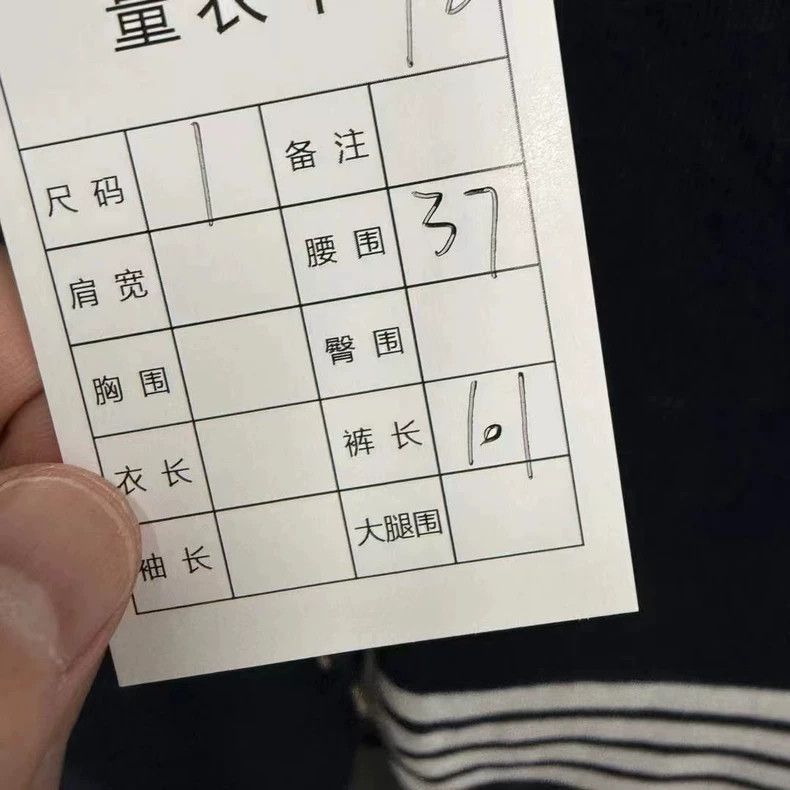 量衣
尺码 1 备注
肩宽 腰围 37
胸围 臀围
衣长 裤长 101
袖长 大腿围